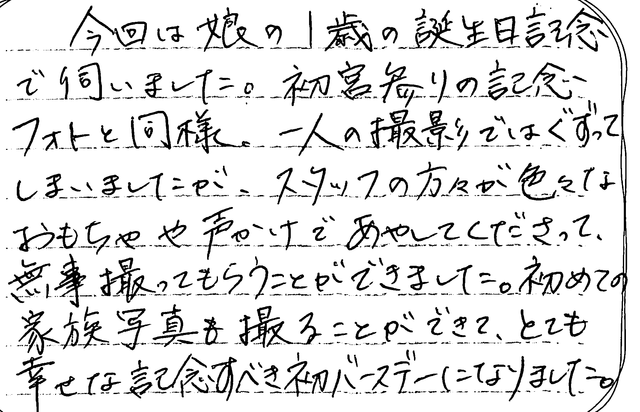 今回は娘の1歳の誕生日記念
で伺いました。初宮参りの記念
フォトと同様、一人の撮影ではぐずって
しまいましたが、スタッフの方々が色々な
おもちゃや声かけであやしてくださって、
無事撮ってもらうことができました。初めての
家族写真も撮ることができて、とても
幸せな記念すべき初バースデーになりました。